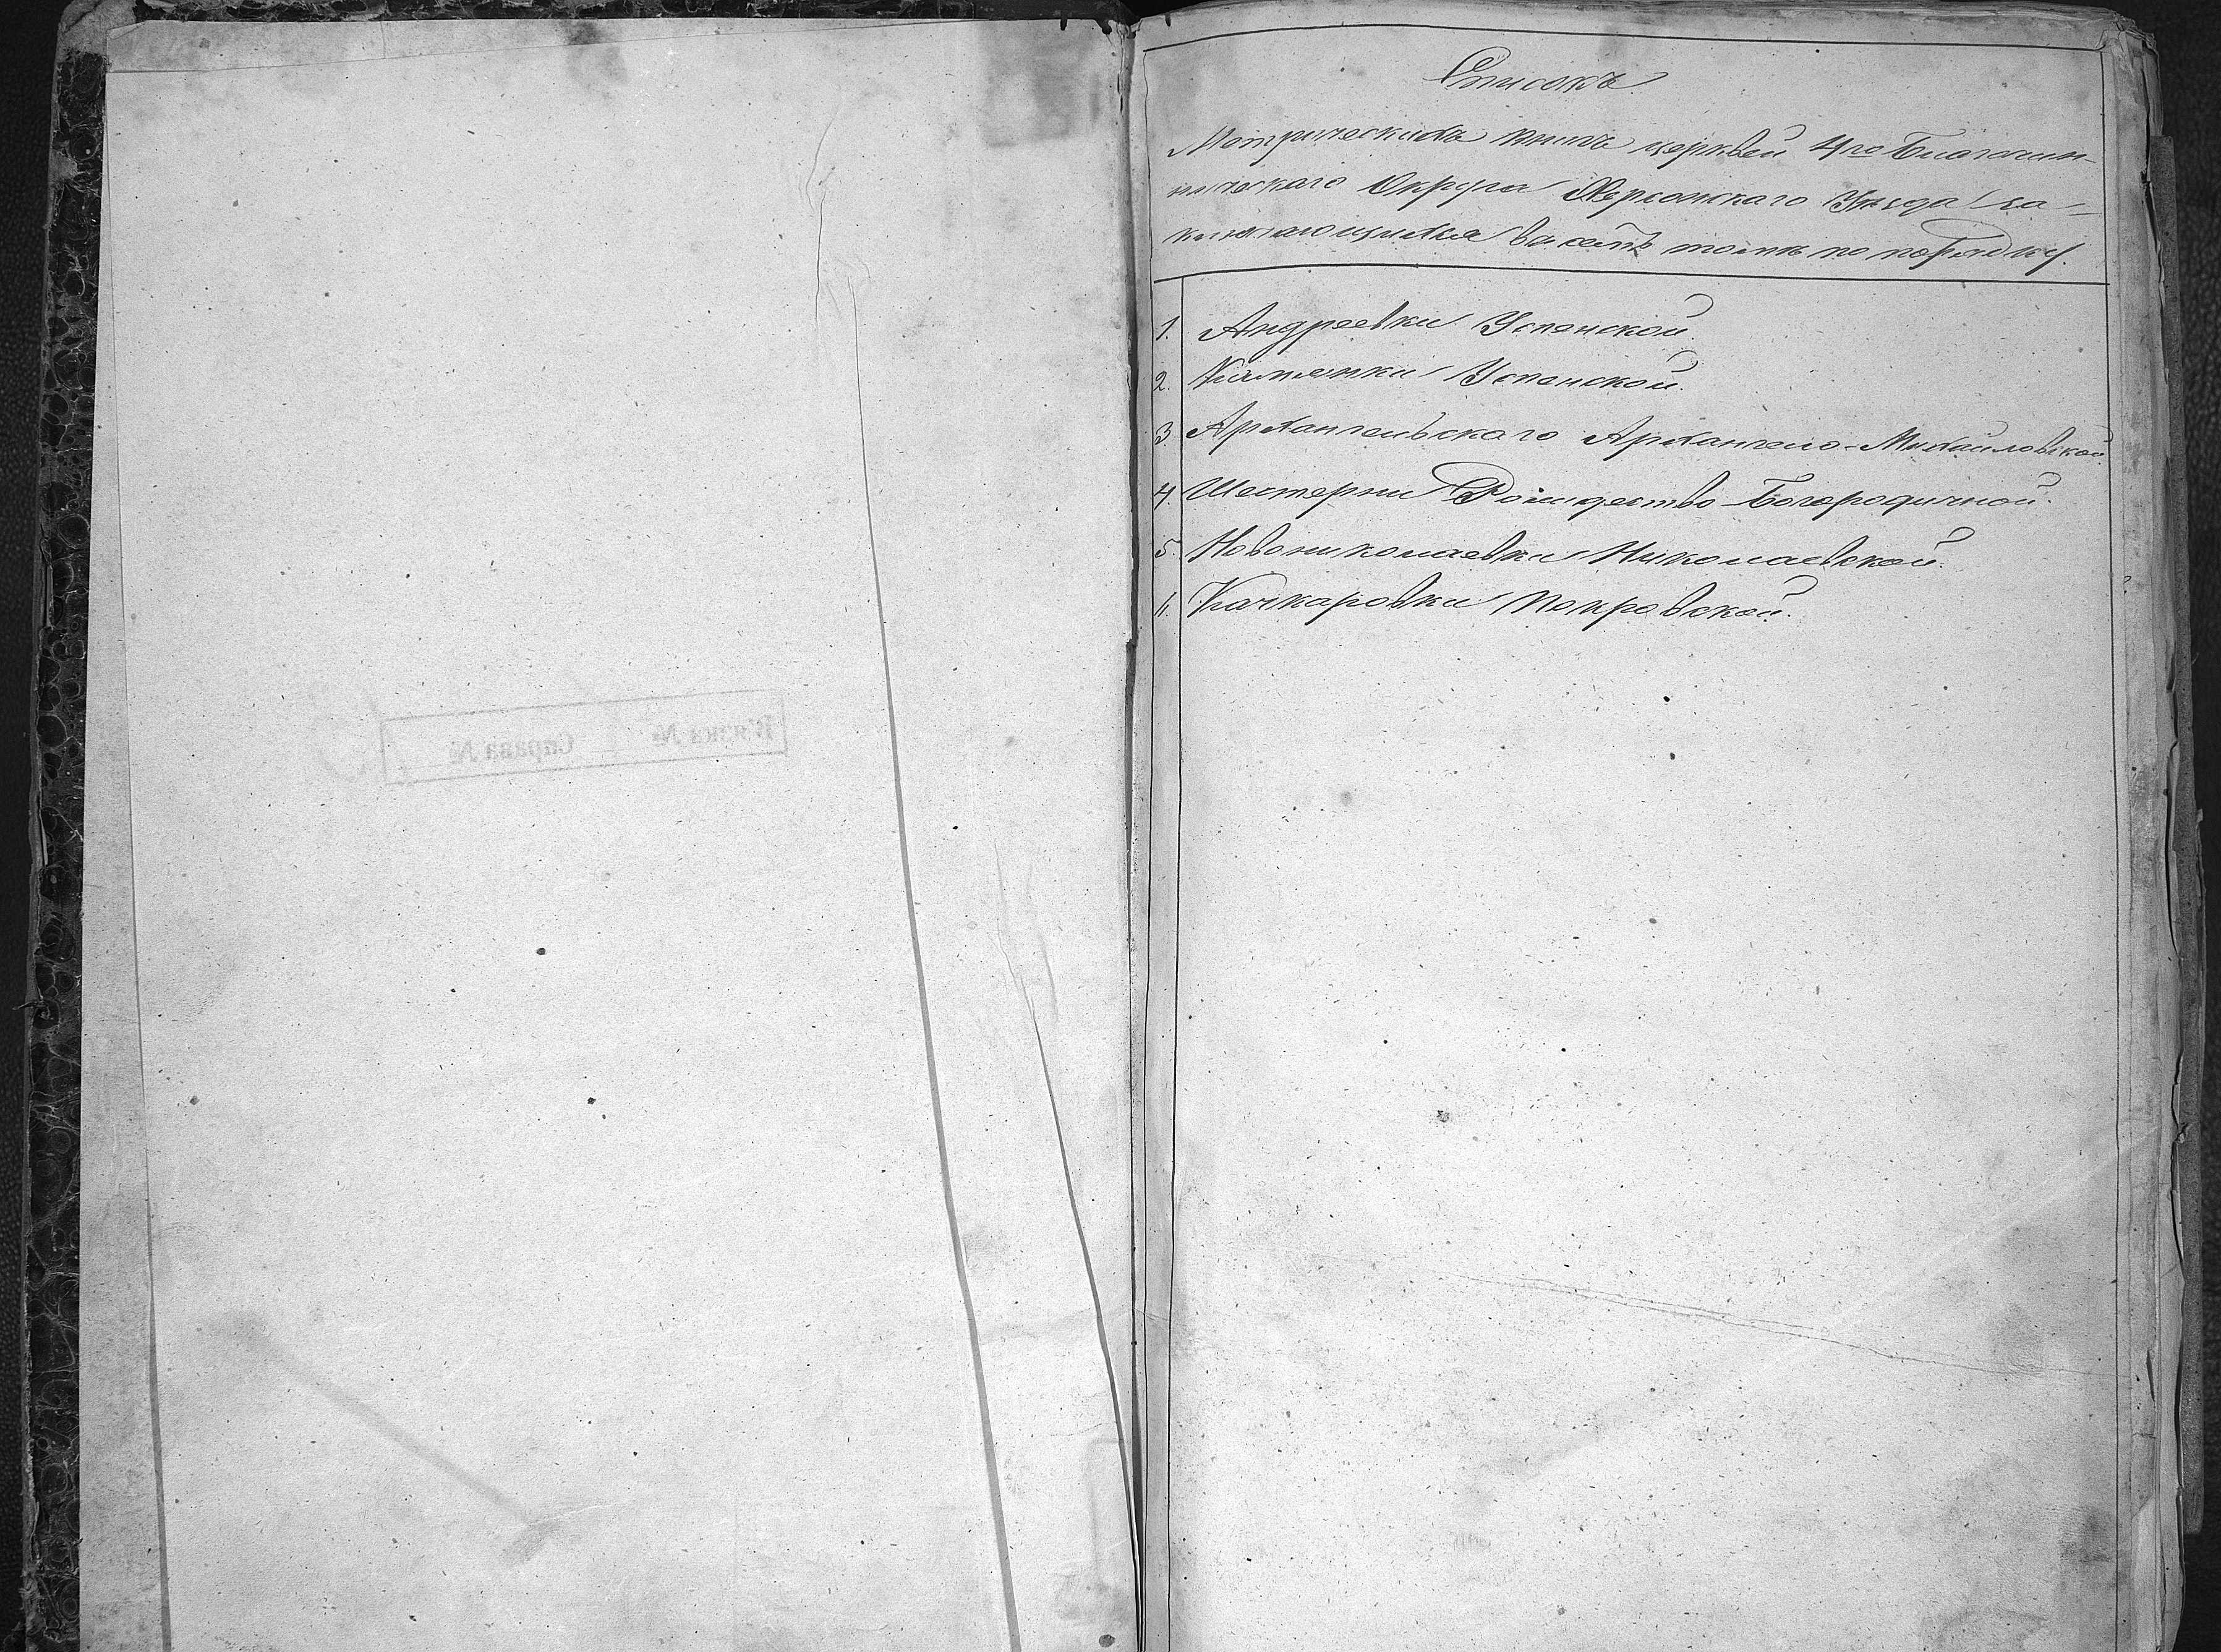 Списокъ
Метрическихъ книгъ церквей 4го Благочин-
ническаго Округа Херсонскаго Уѣзда за-
ключающихся въ семъ томѣ по порядку.
1. Андреевки Успенской.
2. Камянки Успенской.
3. Архангельскаго Архангело-Михайловской.
4. Шестерни Рождество-Богородичной.
5. Новониколаевки Николаевской.
6. Качкаровки Покровской.
В'язка № Справа №